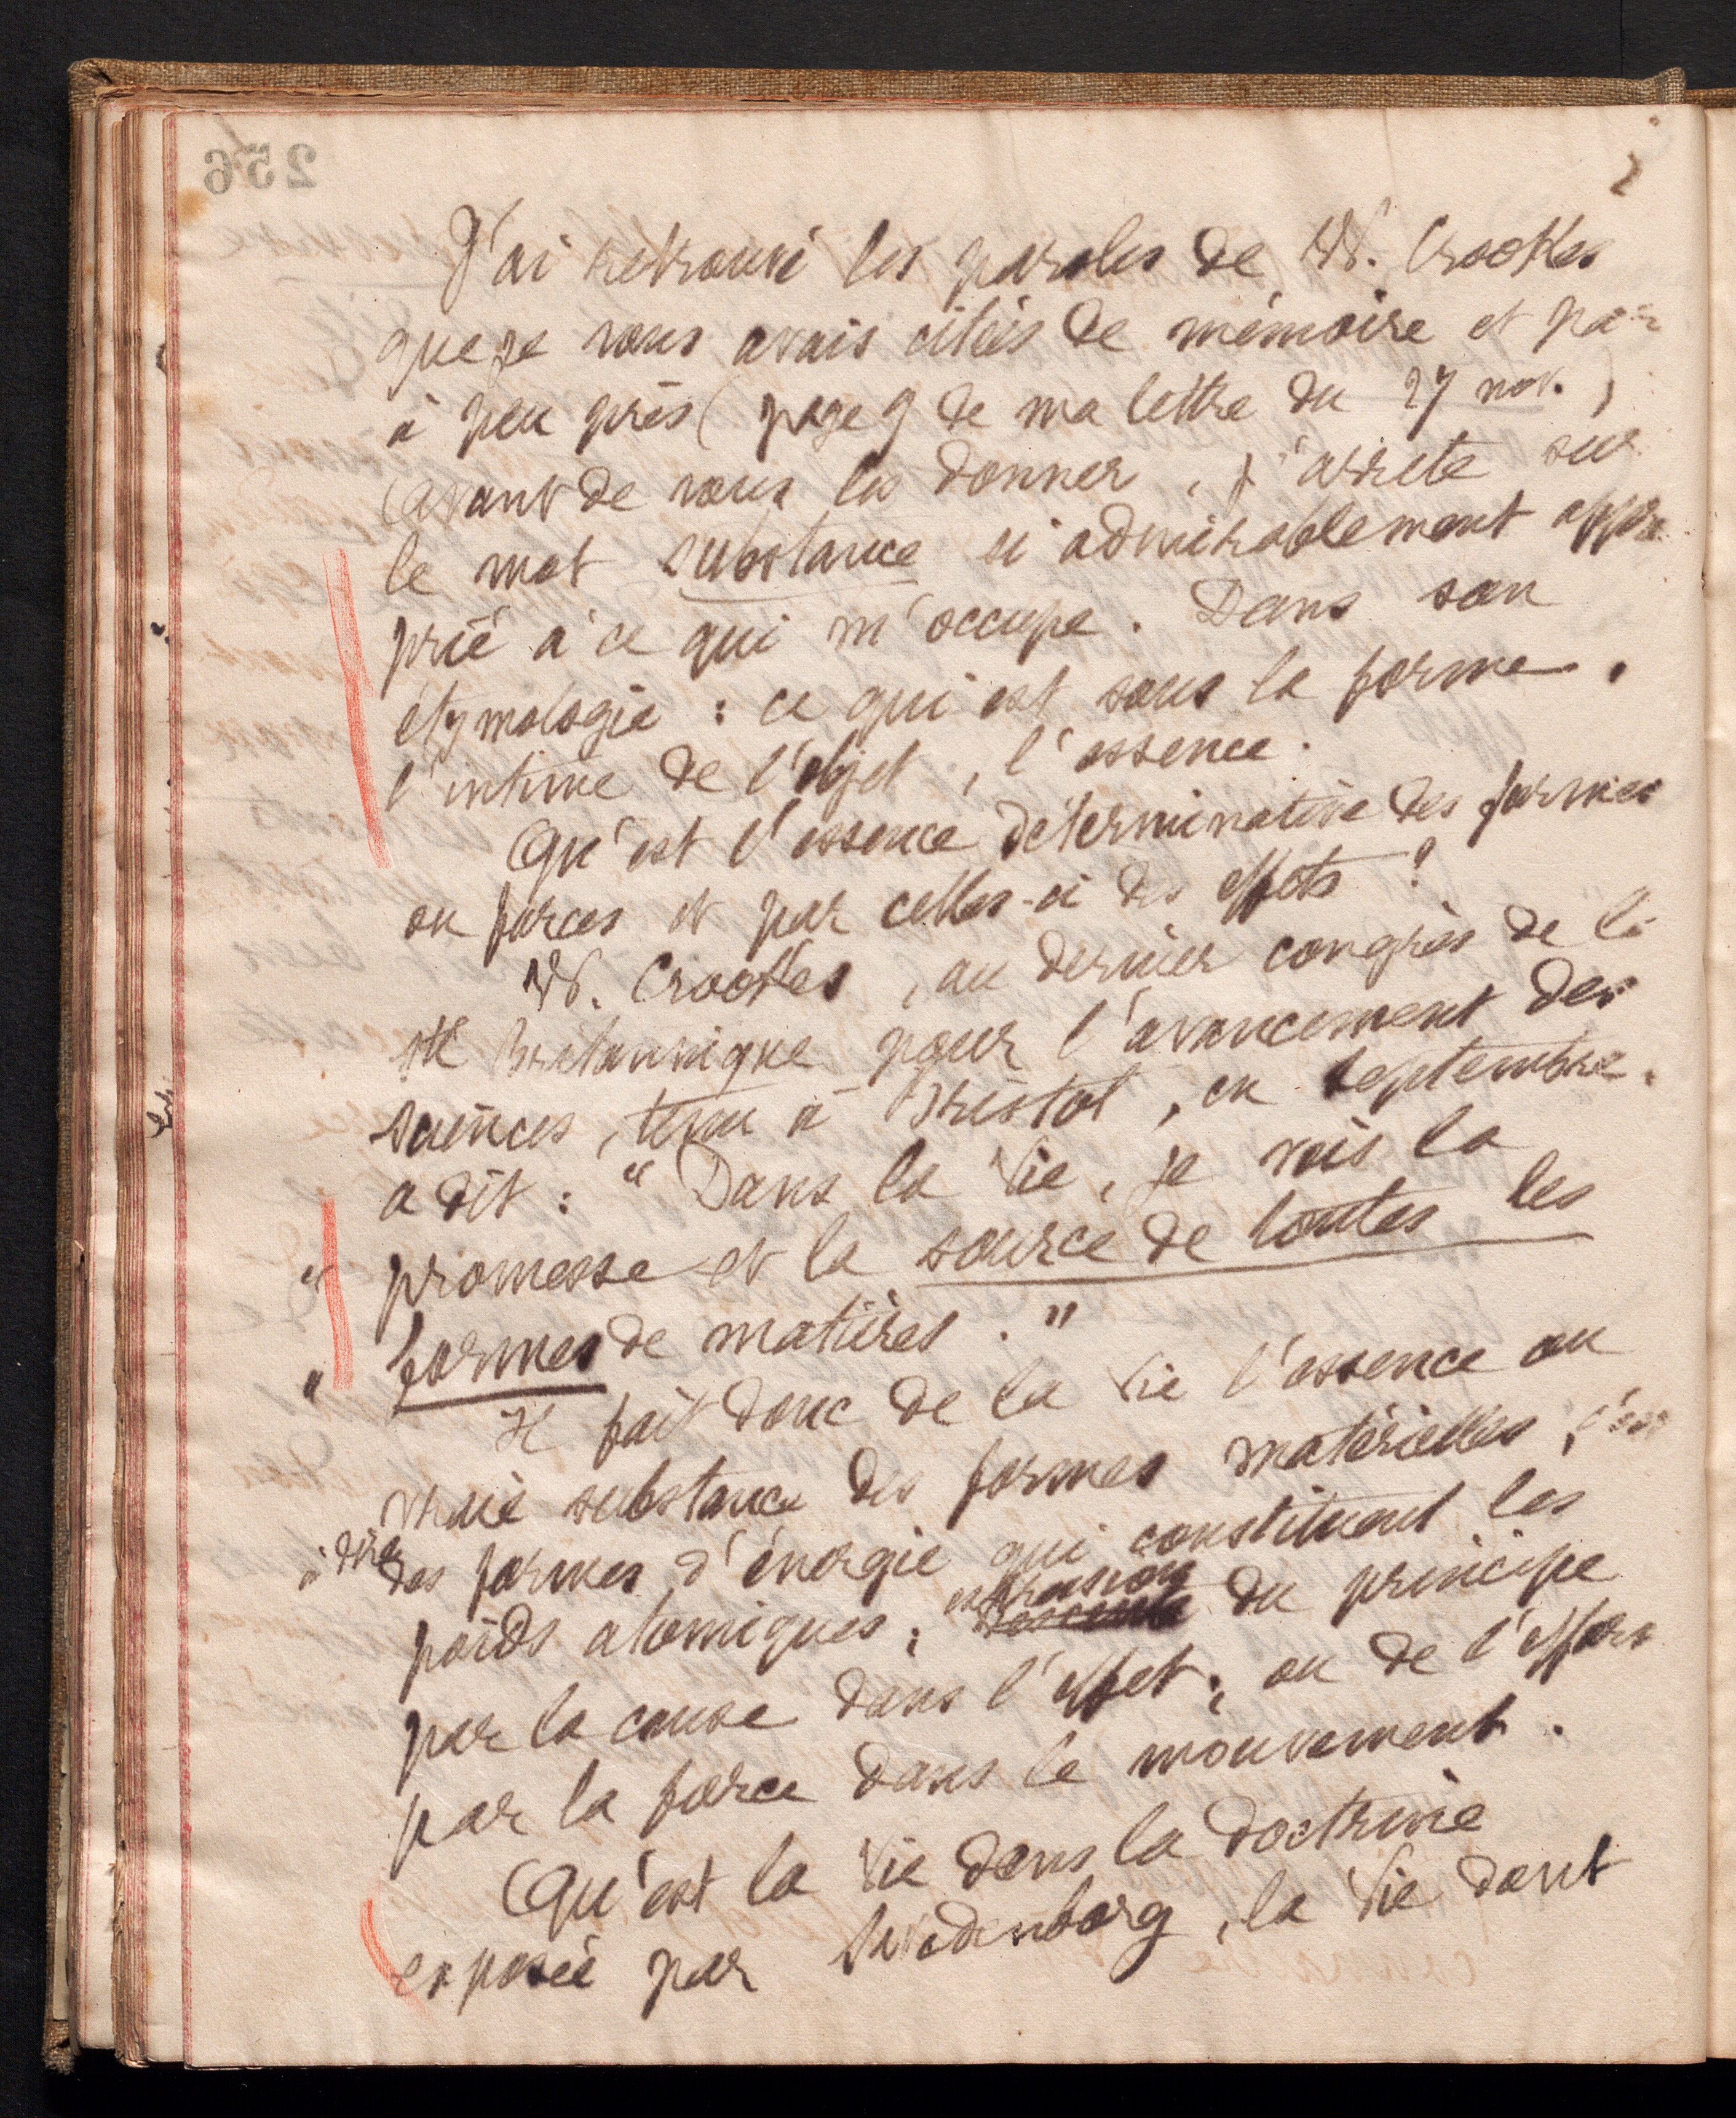 2
J'ai retrouvé les paroles de W. Crookes
que je vous avais citées de mémoire et par
à peu près (page 9 de ma lettre du 27 nov.)
Avant de vous les donner, j'arrête sur
le mot substance si admirablement appro
prié à ce qui m'occupe. Dans son
étymologie : ce qui est sous la forme,
l'intime de l'objet, l'essence.
Qu'est l'essence déterminative des formes
ou forces et par celles-ci des effets ?
W. Crookes, au dernier congrès de la
Sté Britannique pour l'avancement des
sciences, tenu à Bristol, en septembre,
a dit : "Dans la Vie, je vois la
" promesse et la source de toutes les
" formes de matières."
Il fait donc de la Vie l'essence ou
vraie substance des formes matérielles, c'est
à dire des formes d'énergie qui constituent les
expression
poids atomiques, du principe
par la cause dans l'effet, ou de l'effort
par la force dans le mouvement.
Qu'est la Vie dans la doctrine
exposée par Swedenborg, la Vie dont